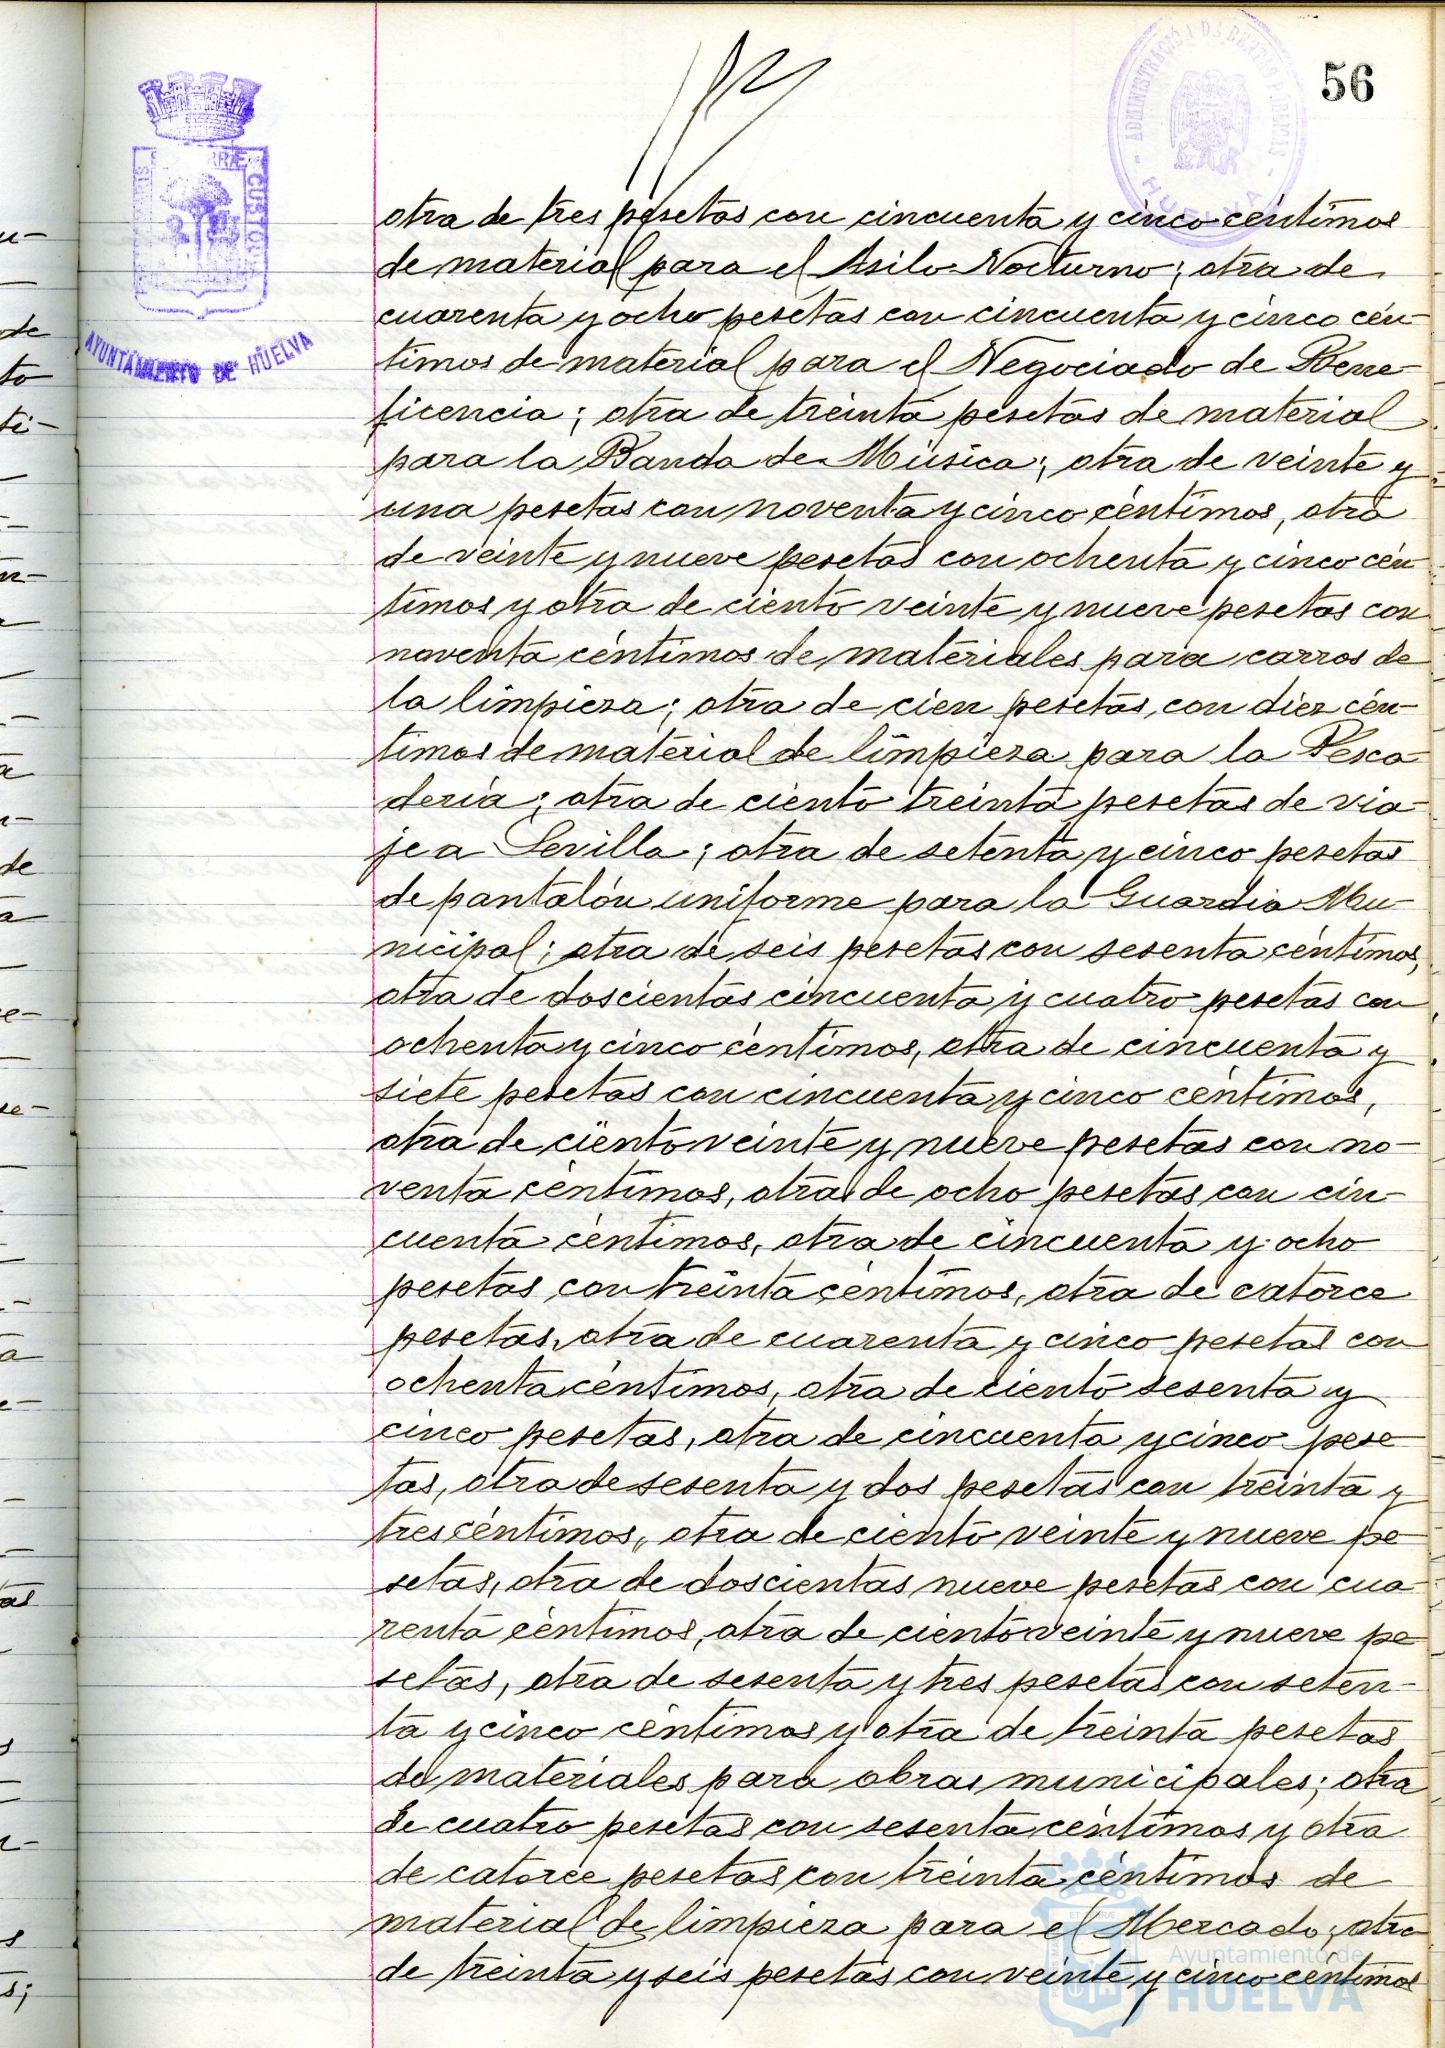 56
ADMINISTRACIÓN DE RENTAS PÚBLICAS
HUELVA
CUSTO
AYUNTAMIENTO DE HUELVA
otra de tres pesetas con cincuenta y cinco céntimos
de material para el Asilo Nocturno; otra de
cuarenta y ocho pesetas con cincuenta y cinco cén-
timos de material para el Negociado de Bene-
ficencia; otra de treinta pesetas de material
para la Banda de Música; otra de veinte y
una pesetas con noventa y cinco céntimos, otra
de veinte y nueve pesetas con ochenta y cinco cén-
timos y otra de ciento veinte y nueve pesetas con
noventa céntimos de materiales para carros de
la limpieza; otra de cien pesetas con diez cén-
timos de material de limpieza para la Pesca-
dería; otra de ciento treinta pesetas de via-
je a Sevilla; otra de setenta y cinco pesetas
de pantalón uniforme para la Guardia Mu-
nicipal; otra de seis pesetas con sesenta céntimos,
otra de doscientas cincuenta y cuatro pesetas con
ochenta y cinco céntimos, otra de cincuenta y
siete pesetas con cincuenta y cinco céntimos,
otra de ciento veinte y nueve pesetas con no-
venta céntimos, otra de ocho pesetas con cin-
cuenta céntimos, otra de cincuenta y ocho
pesetas con treinta céntimos, otra de catorce
pesetas, otra de cuarenta y cinco pesetas con
ochenta céntimos, otra de ciento sesenta y
cinco pesetas, otra de cincuenta y cinco pese-
tas, otra de sesenta y dos pesetas con treinta y
tres céntimos, otra de ciento veinte y nueve pe-
setas, otra de doscientas nueve pesetas con cua-
renta céntimos, otra de ciento veinte y nueve pe-
setas, otra de sesenta y tres pesetas con seten-
ta y cinco céntimos y otra de treinta pesetas
de materiales para obras municipales; otra
de cuatro pesetas con sesenta céntimos y otra
de catorce pesetas con treinta céntimos de
material de limpieza para el Mercado; otra
de treinta y seis pesetas con veinte y cinco céntimos
Ayuntamiento de
HUELVA